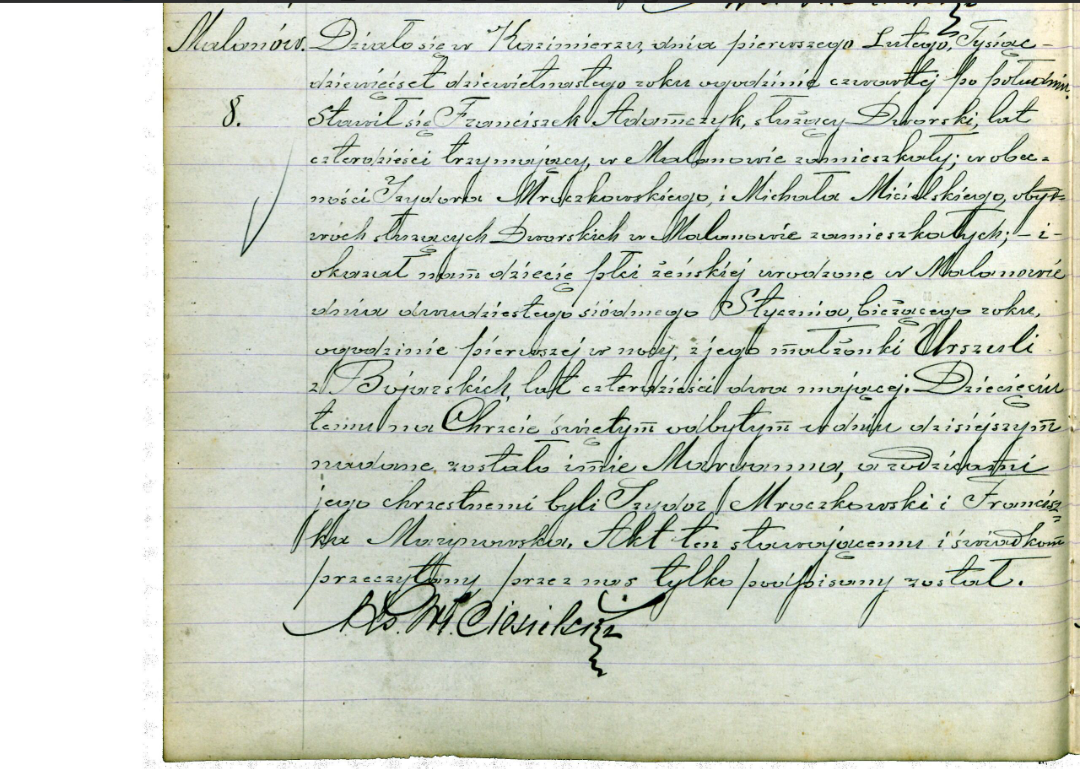 Malanów.
8.
Działo się w Kazimierzu, dnia pierwszego Lutego, Tysiąc-
dziewięćset dziewietnastego roku o godzinie czwartej po południu.
Stawił się Franciszek Adamczyk, służący Dworski, lat
czterdzieści trzy mający, w Malanowie zamieszkały; w obec-
ności Izydora Mroczkowskiego, i Michała Micielskiego, obyd-
wóch służących Dworskich w Malanowie zamieszkałych; - i -
okazał nam dziecię płci żeńskiej urodzone w Malanowie
dnia dwudziestego siódmego Stycznia, bieżącego roku,
o godzinie pierwszej w nocy, z jego małżonki Urszuli
z Bojarskich, lat czterdzieści dwa mającej. Dziecięciu
temu na Chrzcie świętym odbytym w dniu dzisiejszym
nadane zostało imie Maryanna, a rodzicami
jego chrzestnemi byli Izydor Mroczkowski i Francisz-
ka Mazurowska. Akt ten stawającemu i świadkom
przeczytany przez nas tylko podpisany został.